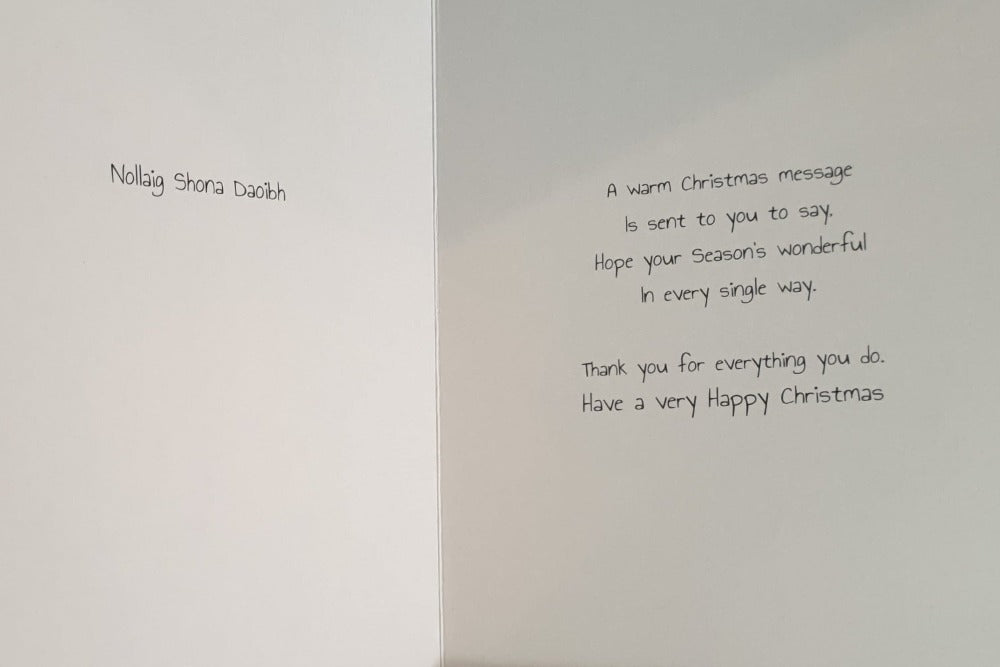 Nollaig Shona Daoibh
A warm Christmas message
Is sent to you to say.
Hope your Season's wonderful
In every single way.
Thank you for everything you do.
Have a very Happy Christmas